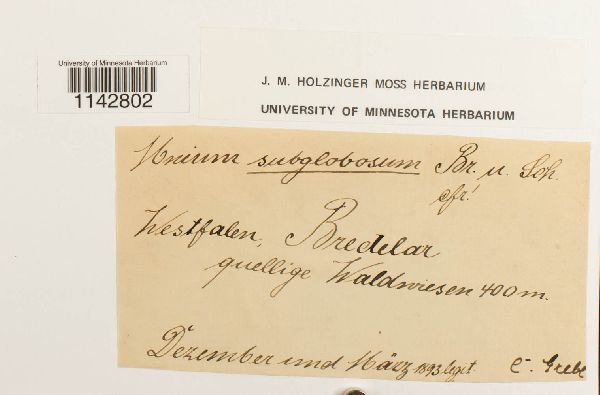 University of Minnesota Herbarium
1142802
J. M. HOLZINGER MOSS HERBARIUM
UNIVERSITY OF MINNESOTA HERBARIUM
Mnium subglobosum Br. u. Sch.
cfr!
Westfalen, Bredelar
quellige Waldwiesen 400 m.
Dezember und März 1893 legit. C. Grebe